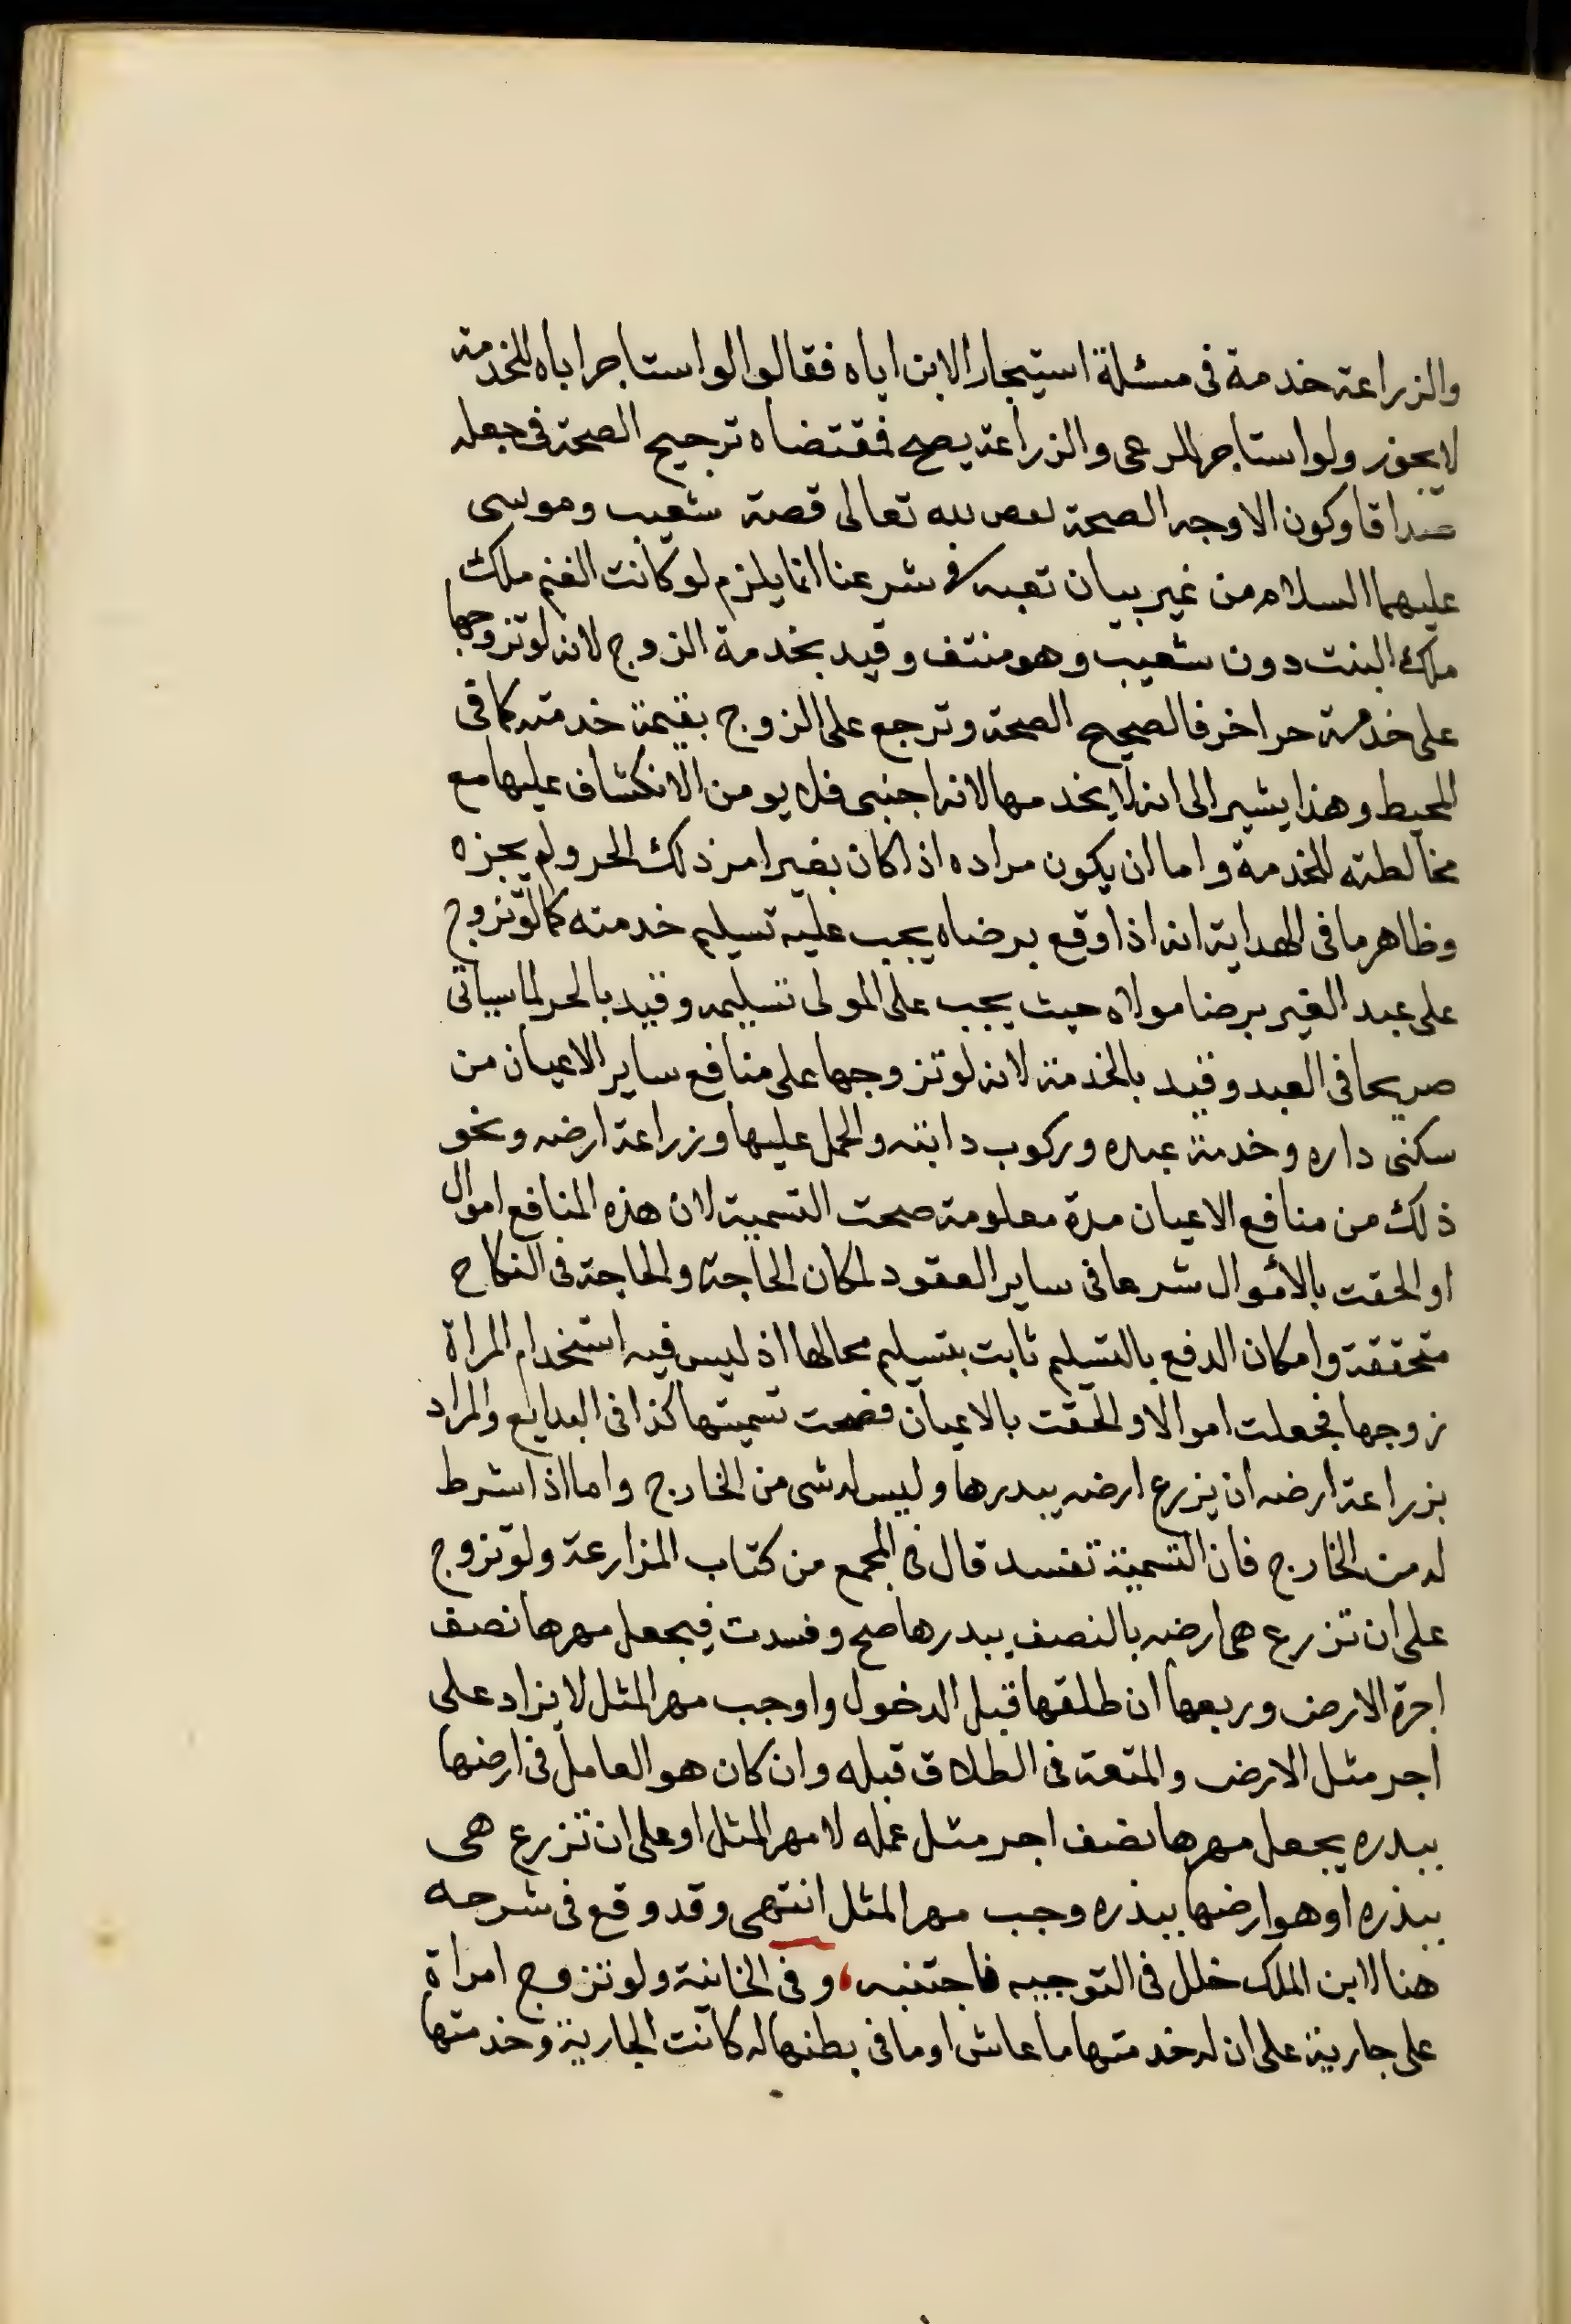 والزراعة خدمة فى مسئلة استيجار الابن اباه فقالوا لو استاجر اباه للخدمة
لا يجوز ولو استاجر للرعى والزراعة يصح فقتضاه ترجيح الصحة فى جعله
صداقا وكون الاوجه الصحة لقص الله تعالى قصة شعيب وموسى
عليهما السلام من غير بيان نفيه فى شرعنا انما يلزم لو كانت الغنم ملك
ملك البنت دون شعيب وهو منتف وقيد بخدمة الزوج لانه لو تزوجها
على خدمة حر اخر فالصحيح الصحة وترجع على الزوج بقيمة خدمته كما فى
المحيط وهذا يشير الى انه لا يخدمها لانه اجنبى فلا يومن الانكشاف عليها مع
مخالطته للخدمة واما ان يكون مراده اذا كان بغير امر ذلك الحر ولم يجزه
وظاهر ما فى الهداية انه اذا وقع برضاه يجب عليه تسليم خدمته كما لو تزوج
على عبد الغير برضا مولاه حيث يجب على المولى تسليمه وقيد بالحر لما سياتى
صريحا فى العبد وقيد بالخدمة لانه لو تزوجها على منافع ساير الاعيان من
سكنى داره وخدمة عبده وركوب دابته والحمل عليها وزراعة ارضه ونحو
ذلك من منافع الاعيان مدة معلومة صحت التسمية لان هذه المنافع اموال
او الحقت بالأموال شرعا فى ساير العقود لمكان الحاجة والحاجة فى النكاح
متحققة وامكان الدفع بالتسليم ثابت بتسليم محالها اذ ليس فيه استخدام المراة
زوجها فجعلت اموالا والحقت بالاعيان فصحت تسميتها كذا فى البدايع والمراد
بزراعة ارضه ان يزرع ارضه ببدرها وليس له شى من الخارج واما اذا شرط
له من الخارج فان التسمية تفسد قال فى المجمع من كتاب المزارعة ولو تزوج
على ان تزرع هى ارضه بالنصف ببدرها صح وفسدت فيجعل مهرها نصف
اجرة الارض وربعها ان طلقها قبل الدخول واوجب مهر المثل لا يزاد على
اجر مثل الارض والمتعة فى الطلاق قبله وان كان هو العامل فى ارضها
ببدره يجعل مهرها نصف اجر مثل عمله لا مهر المثل او على ان تزرع هى
ببذره او هو ارضها ببذره وجب مهر المثل انتهى وقد وقع فى شرحه
هنا لابن الملك خلل فى التوجيه فاجتنبه، وفى الخانية ولو تزوج امراة
على جارية على ان له خدمتها ما عاش او ما فى بطنها له كانت الجارية وخدمتها